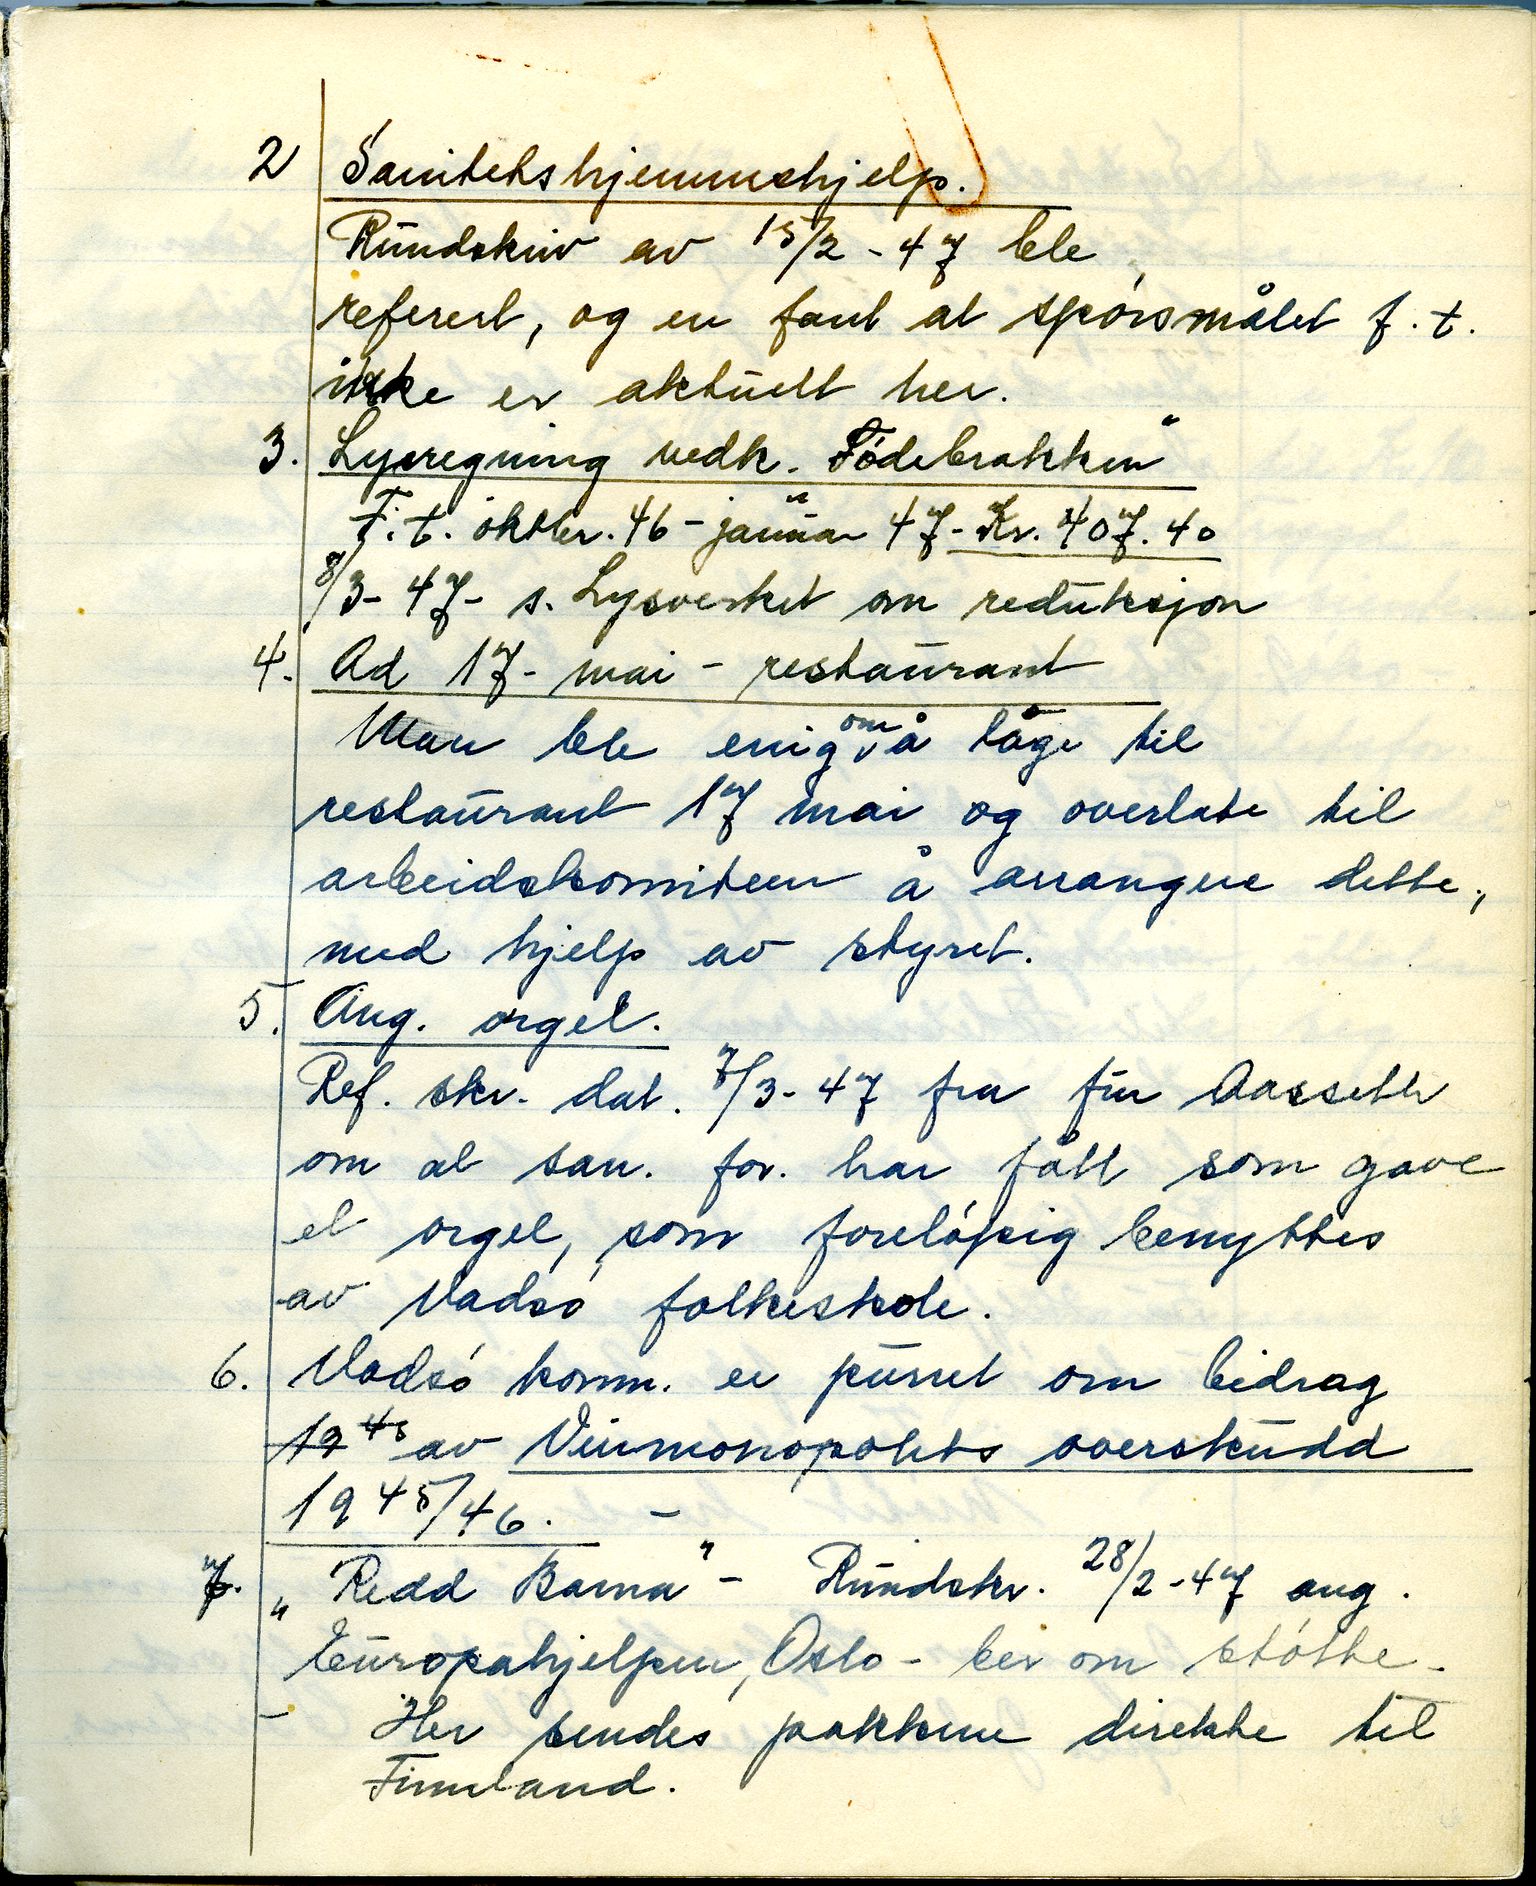 2 Sanitetshjemmehjelp.
Rundskriv av 15/2-47 ble
referert, og en fant at spörsmålet f.t.
ikke er aktuelt her.
3. Lysregning vedk. Födebrakken"
F.t. oktbr. 46 - januar 47 - Kr. 407.40
8/3-47- s. Lysverket om reduksjon
4. Ad 17-mai - restaurant
Man ble enig om å tage til
restaurant 17 mai og overlate til
arbeidskomiteen å arrangere dette,
med hjelp av styret.
5. Ang. orgel.
Ref. skr. dat. 7/3-47 fra fru Aasseth
om at san. for. har fått som gave
et orgel, som forelöpig benyttes
av Vadsö folkeskole.
6. Vadsö komm. er purret om bidrag
1945 av Vinmonopolets overskudd
1945/46. -
7. „Redd Barna" - Rundskr. 28/2-47 ang.
Europahjelpen, Oslo - ber om stötte -
- Her sendes pakkene direkte til
Finnland.